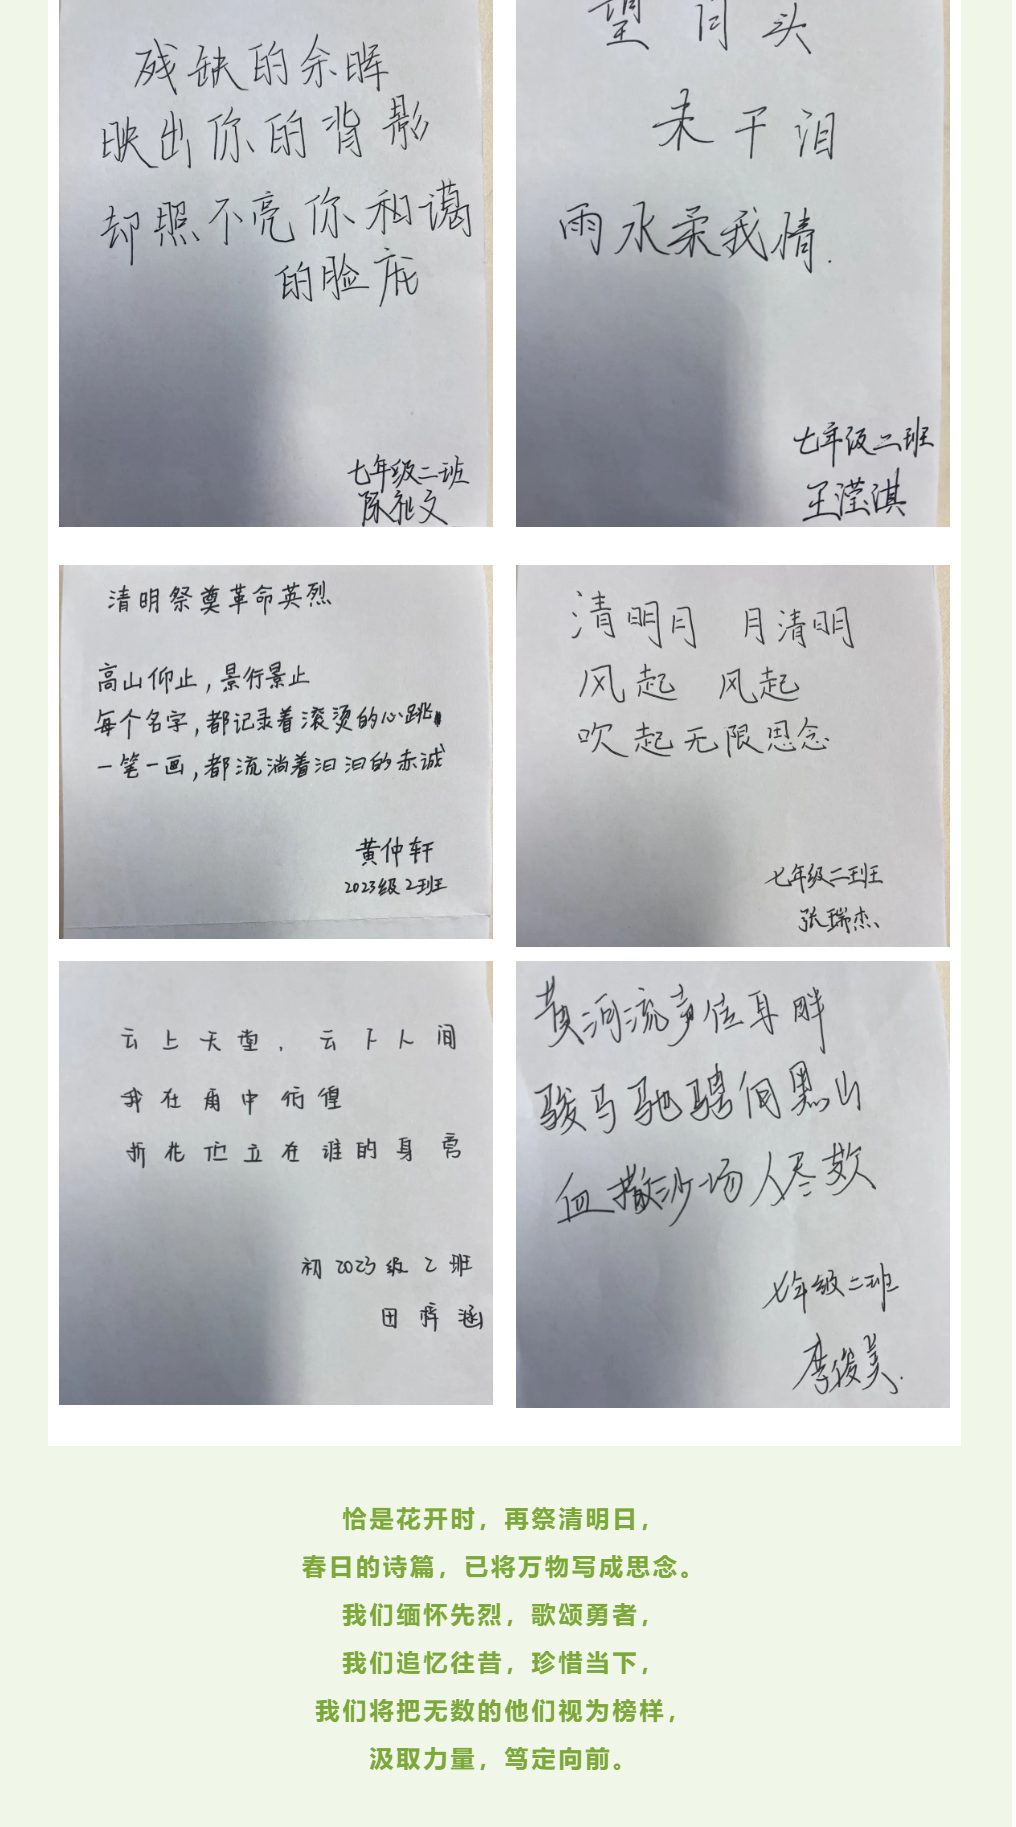 残缺的余晖
映出你的背影
却照不亮你和蔼
的脸庞
七年级二班
陈祉文
望月头
未干泪
雨水柔我情.
七年级二班
王滢淇
清明祭奠革命英烈
高山仰止,景行景止
每个名字,都记录着滚烫的心跳
一笔一画,都流淌着汩汩的赤诚
黄仲轩
2023级2班
清明月 月清明
风起 风起
吹起无限思念
七年级二班
张瑞杰
云上天堂,云下人间
我在雨中彷徨
折花伫立在谁的身旁
初2023级2班
田梓涵
黄河流声位耳畔
骏马驰骋间黑山
血撒沙场人尽欺
七年级二班
李俊美.
恰是花开时，再祭清明日，
春日的诗篇，已将万物写成思念。
我们缅怀先烈，歌颂勇者，
我们追忆往昔，珍惜当下，
我们将把无数的他们视为榜样，
汲取力量，笃定向前。